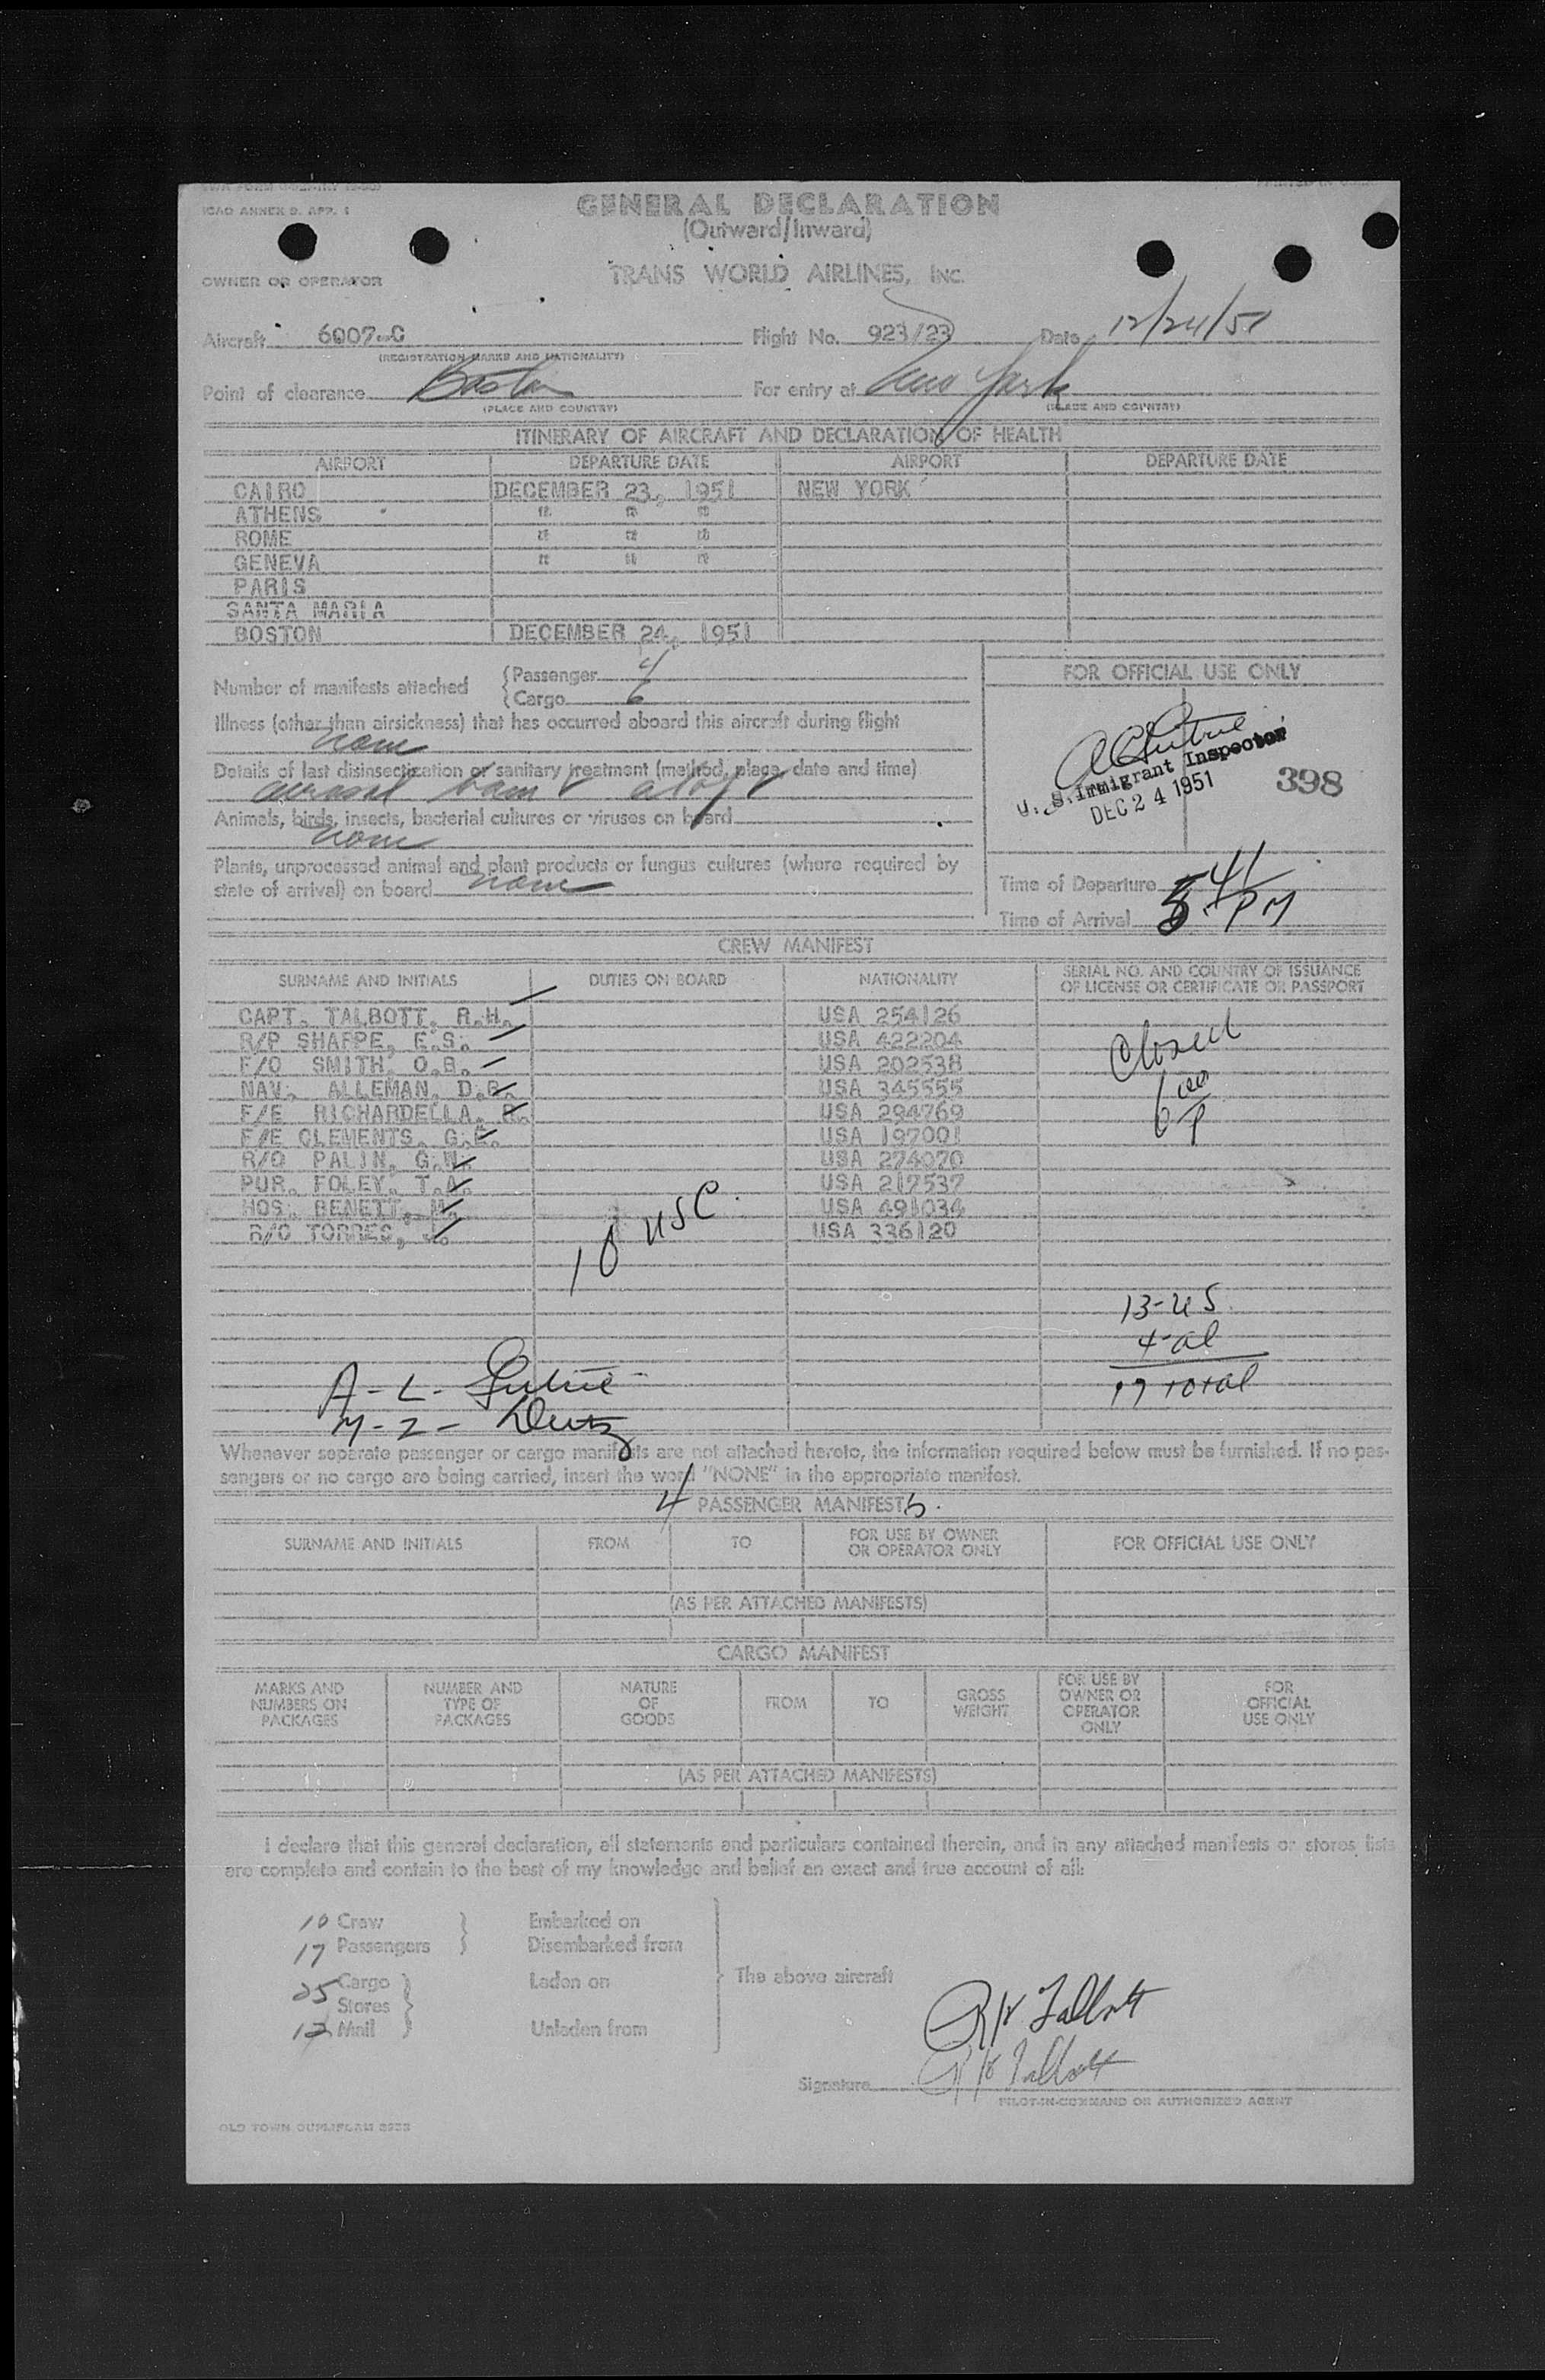 ICAO ANNEX 9, APP. 1
GENERAL DECLARATION
(Outward/Inward)
OWNER OR OPERATOR TRANS WORLD AIRLINES, INC.
Aircraft 6007-C Flight No. 923/23 Date 12/24/51
(REGISTRATION MARKS AND NATIONALITY)
Point of clearance Boston For entry at New York
(PLACE AND COUNTRY) (PLACE AND COUNTRY)
ITINERARY OF AIRCRAFT AND DECLARATION OF HEALTH
AIRPORT DEPARTURE DATE AIRPORT DEPARTURE DATE
CAIRO DECEMBER 23, 1951 NEW YORK
ATHENS " " "
ROME " " "
GENEVA " " "
PARIS
SANTA MARIA
BOSTON DECEMBER 24, 1951
Number of manifests attached
Passenger 4
Cargo 6
FOR OFFICIAL USE ONLY
Illness (other than airsickness) that has occurred aboard this aircraft during flight
none
Details of last disinsectization or sanitary treatment (method, place, date and time)
aerosol bomb aloft
Animals, birds, insects, bacterial cultures or viruses on board
none
Plants, unprocessed animal and plant products or fungus cultures (where required by
state of arrival) on board none
U. S. Immigrant Inspector
DEC 24 1951
398
Time of Departure
Time of Arrival 5 41 PM
CREW MANIFEST
SURNAME AND INITIALS DUTIES ON BOARD NATIONALITY SERIAL NO. AND COUNTRY OF ISSUANCE
OF LICENSE OR CERTIFICATE OR PASSPORT
CAPT. TALBOTT, R.H. USA 254126
R/P SHARPE, E.S. USA 422204
F/O SMITH, O.B. USA 202538
NAV. ALLEMAN, D.R. USA 345555
F/E RICHARDELLA, R. USA 294769
F/E CLEMENTS, G.E. USA 197001
R/O PALIN, G.W. USA 274070
PUR. FOLEY, T.A. USA 217537
HOS. BENETT, M. USA 491034
R/O TORRES, J. USA 336120
Closed
6 00 P
10 USC
13-US
4-al
17 total
A-L- Guthrie
M-Z- Deutz
Whenever separate passenger or cargo manifests are not attached hereto, the information required below must be furnished. If no pas-
sengers or no cargo are being carried, insert the word "NONE" in the appropriate manifest.
4 PASSENGER MANIFESTS.
SURNAME AND INITIALS FROM TO FOR USE BY OWNER
OR OPERATOR ONLY FOR OFFICIAL USE ONLY
(AS PER ATTACHED MANIFESTS)
CARGO MANIFEST
MARKS AND
NUMBERS ON
PACKAGES
NUMBER AND
TYPE OF
PACKAGES
NATURE
OF
GOODS
FROM
TO
GROSS
WEIGHT
FOR USE BY
OWNER OR
OPERATOR
ONLY
FOR
OFFICIAL
USE ONLY
(AS PER ATTACHED MANIFESTS)
I declare that this general declaration, all statements and particulars contained therein, and in any attached manifests or stores lists
are complete and contain to the best of my knowledge and belief an exact and true account of all:
10 Crew Embarked on
17 Passengers Disembarked from
25 Cargo Laden on
Stores
The above aircraft
12 Mail Unladen from
R H Talbott
Signature R H Talbott
PILOT-IN-COMMAND OR AUTHORIZED AGENT